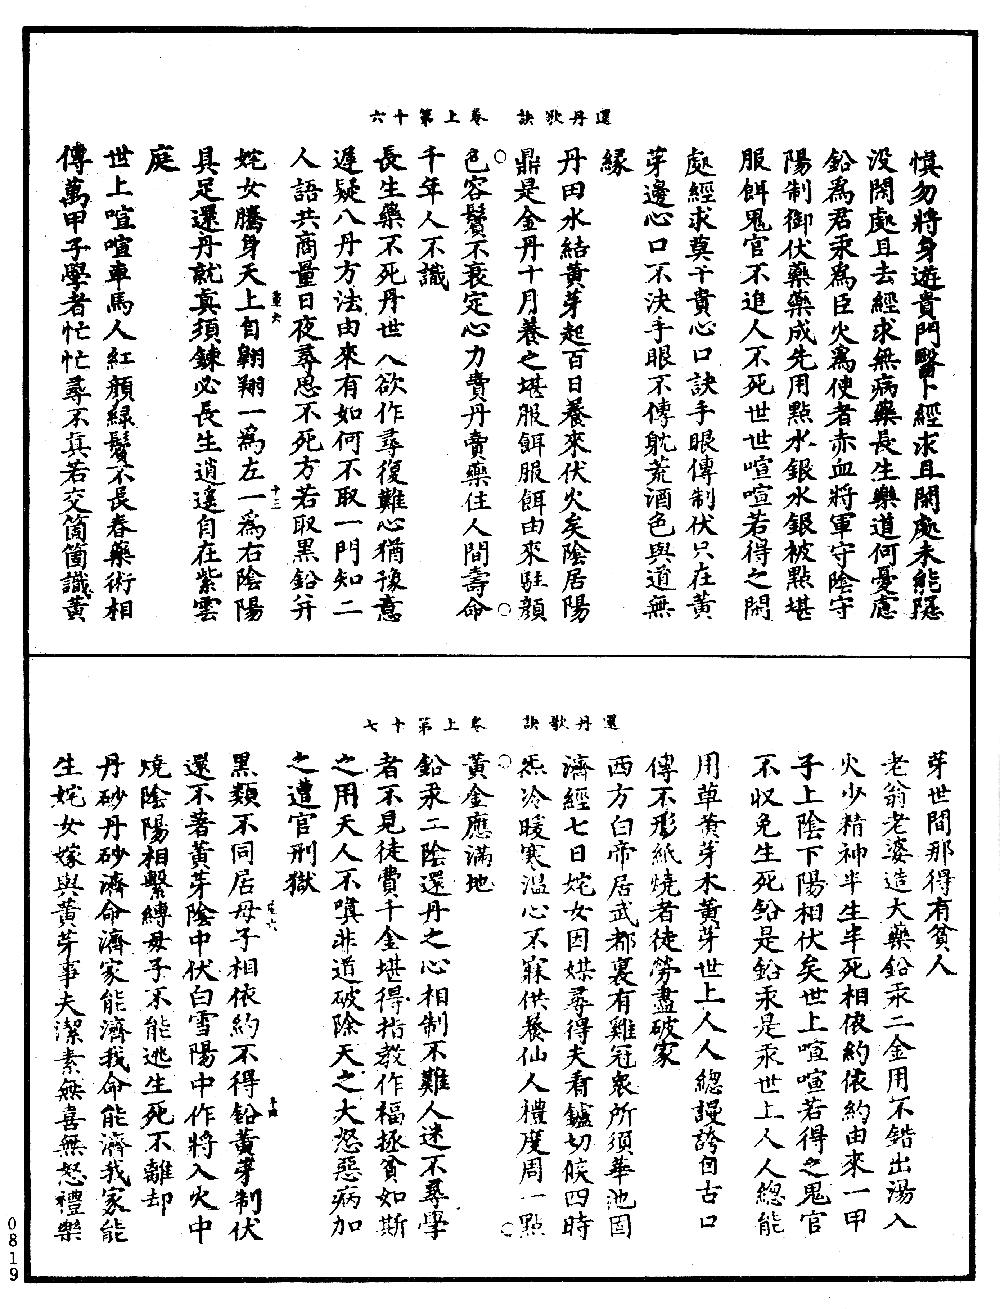 還丹歌訣　卷上第十六
慎勿將身遊貴門醫卜經求且閑處未能隱
没閑處且去經求無病藥長生樂道何憂慮
鉛爲君汞爲臣火爲使者赤血將軍守陰守
陽制御伏藥藥成先用點水銀水銀被點堪
服餌鬼官不追人不死世世喧喧若得之閑
處經求莫干貴心口訣手眼傳制伏只在黄
芽邊心口不決手眼不傳躭荒酒色與道無
緣
丹田水結黄芽起百日養來伏火矣陰居陽
鼎是金丹十月養之堪服餌服餌由來駐顔
色容鬢不衰定心力賣丹賣藥住人間壽命
千年人不識
長生藥不死丹世人欲作尋復難心猶豫意
遲疑八丹方法由來有如何不取一門知二
人語共商量日夜尋思不死方若取黑鉛并
姹女騰身天上自翱翔一爲左一爲右陰陽
具足還丹就真須鍊必長生逍遥自在紫雲
庭
世上喧喧車馬人紅顔緑鬢不長春藥術相
傳萬甲子學者忙忙尋不真若交箇箇識黄
十三
還丹歌訣　卷上第十七
芽世間那得有貧人
老翁老婆造大藥鉛汞二金用不錯出湯入
火少精神半生半死相依約依約由來一甲
子上陰下陽相伏矣世上喧喧若得之鬼官
不收免生死鉛是鉛汞是汞世上人人總能
用草黄芽木黄芽世上人人總謾誇自古口
傳不形紙燒者徒勞盡破家
西方白帝居武都裏有雞冠衆所須華池固
濟經七日姹女因媒尋得夫看鑪切候四時
炁冷暖寒溫心不寐供養仙人禮度周一點
黄金應滿地
鉛汞二陰還丹之心相制不難人迷不尋學
者不見徒費千金堪得指教作福拯貧如斯
之用天人不嗔非道破除天之大怒惡病加
之遭官刑獄
黑類不同居母子相依約不得鉛黄芽制伏
還不著黄芽陰中伏白雪陽中作將入火中
燒陰陽相繫縛母子不能逃生死不離却
丹砂丹砂濟命濟家能濟我命能濟我家能
生姹女嫁與黄芽事夫潔素無喜無怒禮樂
0819